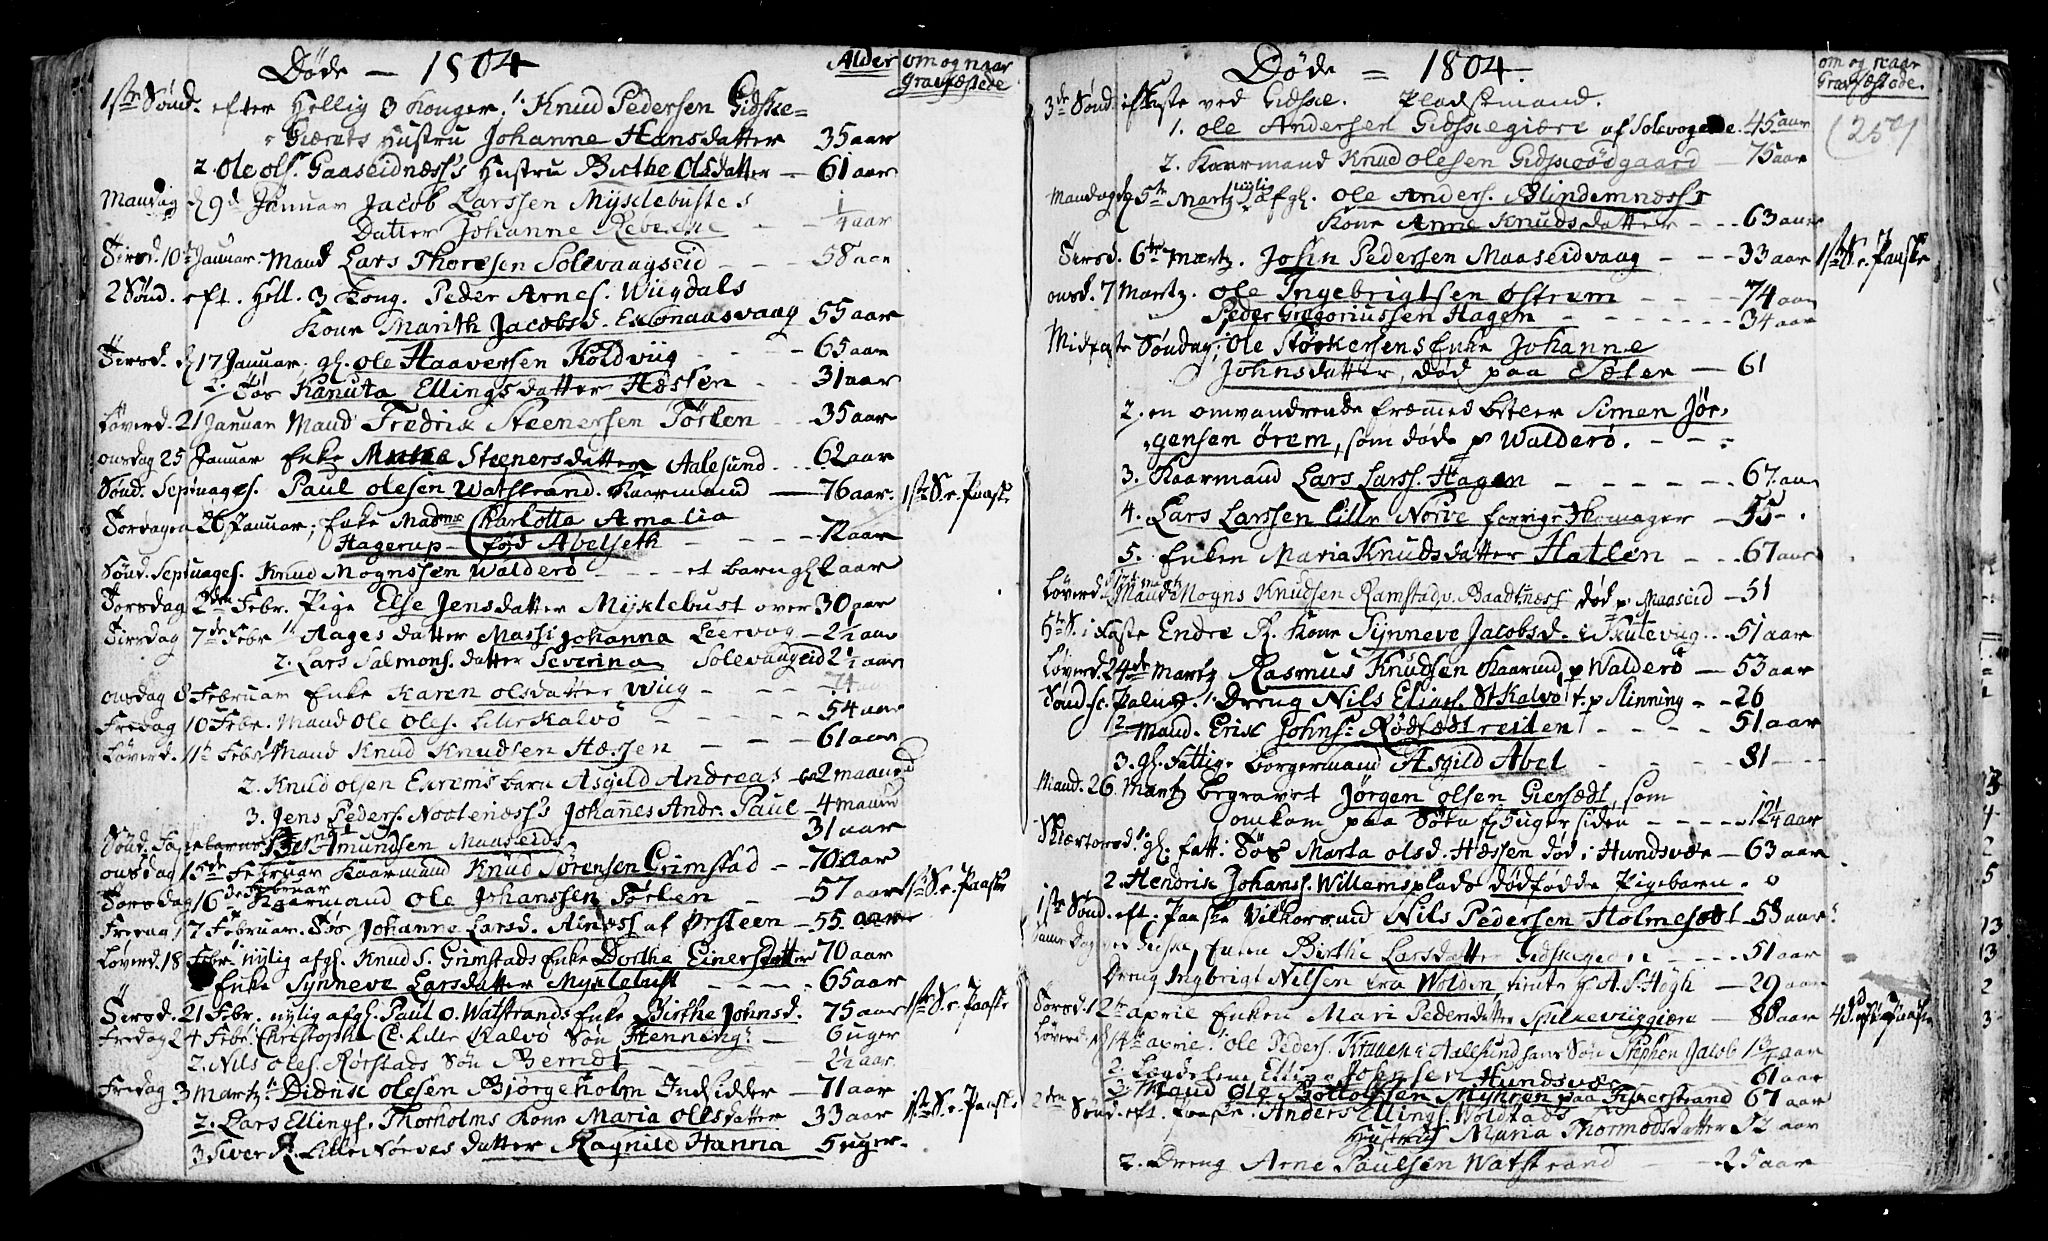 Døde — 1804
Alder
om og naar Gravfæstede
1ste Sønd. efter Hellig 3 Konger. 1. Knud Pedersen Gidske-
Giærets Hustru Johanne Hansdatter 35 aar
2. Ole Ols. Gaaseidnæss's Hustru Birthe Olsdatter — 61 aar
Mandag d 9de Januar Jacob Larssen Myklebustes
Datter Johanne Rebecke - - 1/4 aar
Tirsd. 10de Januar. Mand Lars Thoresen Solevaagseid - - - 58 aar
2 Sønd. eft. Hell. 3 Kong. Peder Arnes. Wiigdals
Kone Marith Jacobsd. Exonaasvaag 55 aar
Tirsd. d 17 Januar. gl. Ole Haaversen Koldviig - - - 65 aar
2. Tøs Kanuta Ellingsdatter Hæssen - - 31 aar
Løverd. 21 Januar Mand Fredrik Steenersen Tørlen - - 35 aar
Onsdag 25 Januar Enke Steenersdatter Aalesund - - - 62 aar
Sønd. Septuages. Paul Olesen Watstrand. Kaarmand — 76 aar. 1ste S. e. Paaske
Torsdagen 26 Januar; Enke Madme Charlotta Amalia
Hagerup — fød Abelseth - - - - 72 aar
Sønd. Septuages. Knud Mognssen Walderø - - - - et barn gl. 2 aar
Torsdag 2den Febr. Pige Else Jensdatter Myklebust over 30 aar
Tirsdag 7de Febr 1. Aages datter Massi Johanna Leervog — 2½ aar
2. Lars Salmons. datter Severina Solevaageid 2½ aar
Onsdag 8 Februar Enke Karen Olsdatter Wiig - - - - 74 aar
Fredag 10 Febr. Mand Ole Oles. Lille Kalvø - - - - - 54 aar
Løverd. 11te Febr 1. Mand Knud Knudsen Hæssen - - - 61 aar
2. Knud Olsen Ekrems barn Asgild Andreas 2 maaned
3. Jens Peders. Nootenæss's Johannes Andr. Paul — 4 maaned
Sønd. Amundsen Maaseide 31 aar
Onsdag 15de Februar Kaarmand Knud Sørensen Grimstad — 70 aar
Torsdag 16de Februar Kaarmand Ole Johanssen Tørlen - - 57 aar 1ste S. e. Paaske
Fredag 17 Februar. Tøs Johanne Larsd. af Ørsteen — 55. aar
Løverd. 18 Febr. nylig afg. Knud S. Grimstads Enke Dorthe Einersdatter 70 aar
Enke Synneve Larsdatter Myklebust - - - - 65 aar
Tirsd. 21 Febr. nylig afg. Paul O. Watstrands Enke Birthe Johnsd. 75 aar 1ste S. e. Paaske
Fredag 24 Febr. Christopher C. Lille Kalvø Søn Henning: — 6 uger
2. Nils Oles. Rørstads Søn Berndt - - - - 2½ aar.
Fredag 3 Martz. 1 Didrik Olesen Bjørgeholm Indsidder — 71 aar 1ste S. e. Paaske
2. Lars Ellings. Thorholms Kone Maria Olesdatter 33 aar
3. Siver R. Lille Nørves datter Ragnild Hanna 5 uger.

Døde = 1804.
om og naar Gravfæstede.
(254)
3de Sønd. i Faste ved Gidske. Pladsmand.
1. Ole Andersen Gidskegiære af Solevogene. 45 aar
2. Kaarmand Knud Olesen Gidskeødgaard — 75 aar
Mandag d. 5te Martz nylig afg. Ole Anders. Blindemnæss's
Kone Anne Knudsdatter - - - 63 aar
Tirsd. 6te Martz. John Pedersen Maaseidvaag - - - 33 aar 1ste S. e. Paaske
Onsd. 7 Martz. Ole Ingebrigtsen Østrem - - - - 74 aar
Peder Gregoriussen Hagen - - - - - - - 34 aar
Midfaste Søndag. 1 Ole Størkersens Enke Johanne
Johnsdatter, død paa Sæter — 61
2. en omvandrende fremmed betler Simen Jør-
gensen Ørem, som døde p Walderø. - - -
3. Kaarmand Lars Larss. Hagen - - - - - 67 aar
4. Lars Larssen Lille Nørve forrige Skomager — 55 - .
5. Enken Maria Knudsdatter Hatlen - - 67 aar
Løverd. d 17de Martz Mand Mogns Knudsen Ramstad v. Baadtnæss død p Maaseid — 51
5te S. i Faste Endre R. Kone Synneve Jacobsd. Skutevug . . 51 aar
Løverd. 24de Martz Rasmus Knudsen Kaarmd. p Walderø — 53 aar
Sønd. Palm. 1. Dreng Nils Elias. St Kalvø p Slinning - - 26
2. Mand. Erik Johns. Rødsædtreiten - - - - 51 aar
3. gl. Fattig. Borgermand Asgild Abel - - - - 81 - - -
Mand. 26 Martz begravet Jørgen Olsen Giersædt, som
omkom paa Søen 7 uger siden - - - - - 12¼ aar
Skiærtorsd. 1. gl. fatt. Tøs Marta Olsd. Hæssen død i Hundsvæe — 63 aar
2. Hendrik Johanss. Willemsplads dødfødde Pigebarn. 0
1ste Sønd. eft. Paaske Vilkormand Nils Pedersen Holmesædt — 58 aar
Samme Dag ved Gidske, Enken Birthe Larsdatter Gidskegiære - - - - 51 aar
Dreng Ingbrigt Nilsen fra Wolden tiente A. S. Høgh — 29 aar
Torsd. 12te April Enken Mari Pedersdatter Spilkeviiggiære — 80 aar 4 S. e. Paaske
Løverd. 14de April 1. Ole Peders. i Aalesund hans Søn Stephen Jacob 1¾ aar
2. Lægdslem Joensen Hundsvæe 61 aar
3. Mand Ole Bottolfsen Myhren paa Fiskerstrand 67 aar
2den Sønd. eft. Paaske. 1. Anders Ellings. Woldstads
Hustrue Maria Thormodsdatter 72 aar
2. Dreng Arne Paulsen Watstrand - - 25 aar